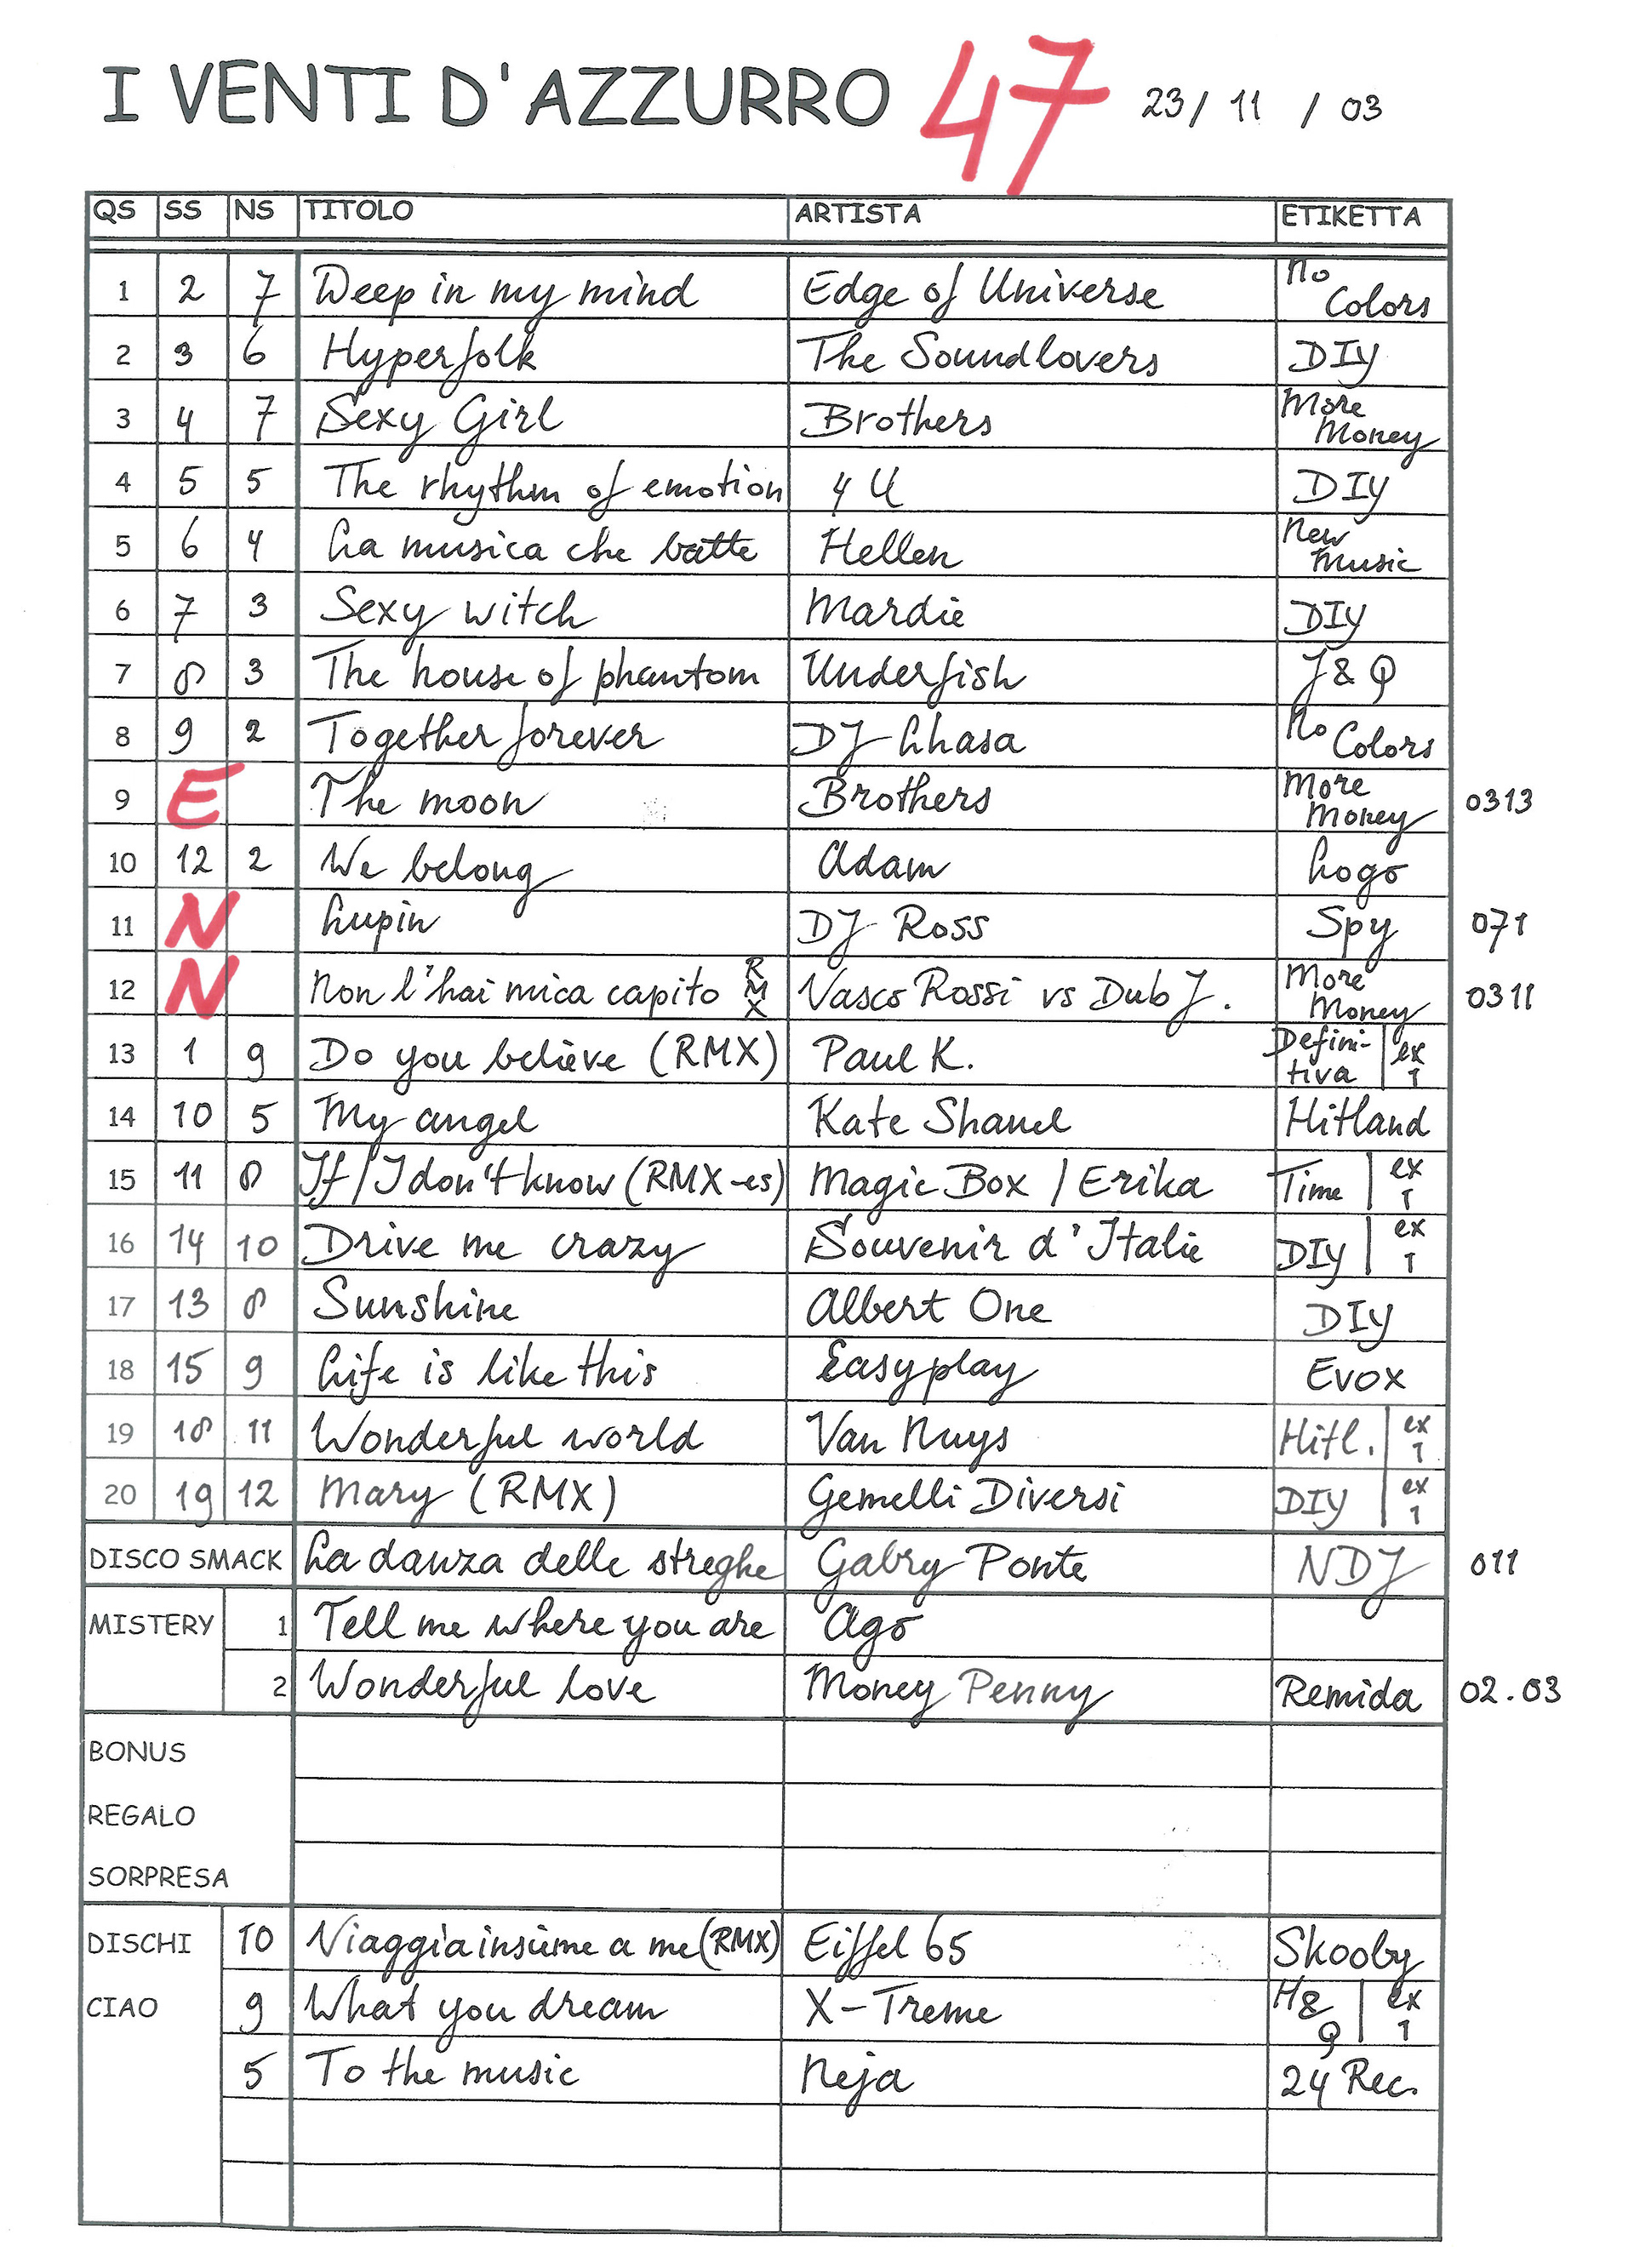 I VENTI D'AZZURRO 47 23/11/03
QS SS NS TITOLO ARTISTA ETIKETTA
1 2 7 Deep in my mind Edge of Universe No Colors
2 3 6 Hyperfolk The Soundlovers DIY
3 4 7 Sexy Girl Brothers More Money
4 5 5 The rhythm of emotion 4 U DIY
5 6 4 La musica che batte Hellen New Music
6 7 3 Sexy witch Mardie DIY
7 8 3 The house of phantom Underfish J & Q
8 9 2 Together forever DJ Lhasa No Colors
9 E The moon Brothers More Money 0313
10 12 2 We belong Adam Logo
11 N Lupin DJ Ross Spy 071
12 N Non l'hai mica capito RMX Vasco Rossi vs Dub J. More Money 0311
13 1 9 Do you believe (RMX) Paul K. Defini-tiva ex 1
14 10 5 My angel Kate Shanel Hitland
15 11 8 If / I don't know (RMX-es) Magic Box / Erika Time ex 1
16 14 10 Drive me crazy Souvenir d'Italie DIY ex 1
17 13 8 Sunshine Albert One DIY
18 15 9 Life is like this Easyplay Evox
19 18 11 Wonderful world Van Nuys Hitl. ex 1
20 19 12 Mary (RMX) Gemelli Diversi DIY ex 1
DISCO SMACK La danza delle streghe Gabry Ponte NDJ 011
MISTERY 1 Tell me where you are Ago
2 Wonderful love Money Penny Remida 02.03
BONUS
REGALO
SORPRESA
DISCHI 10 Viaggia insieme a me (RMX) Eiffel 65 Skooby
CIAO 9 What you dream X-Treme H&Q ex 1
5 To the music Neja 24 Rec.